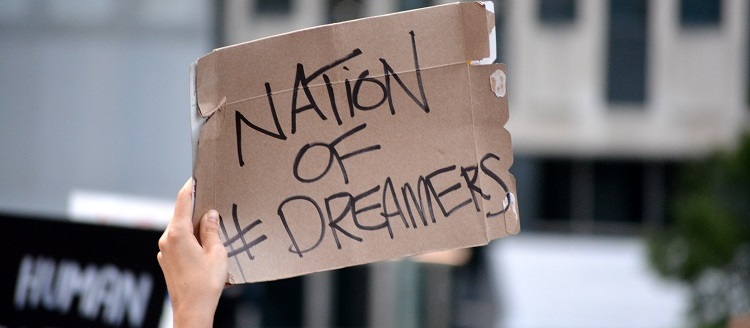 NATION
OF
#DREAMERS
HUMAN